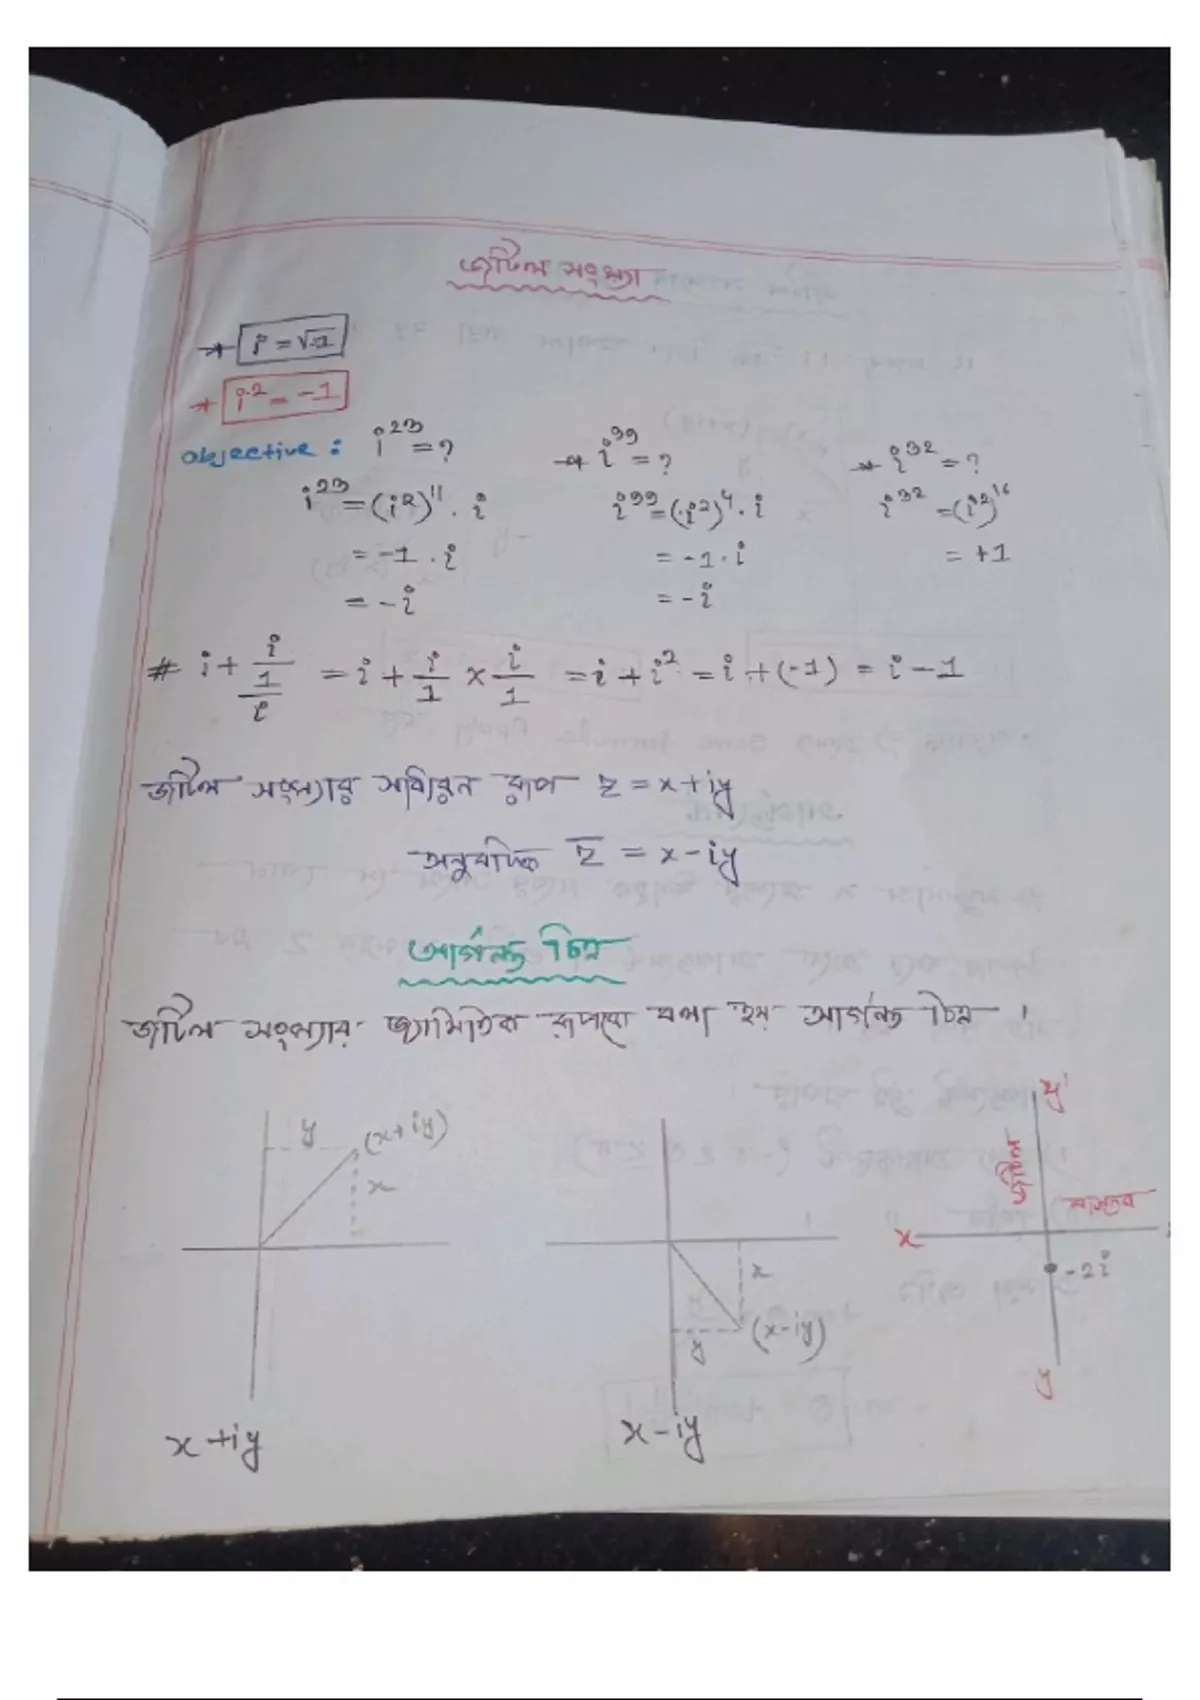 জটিল সংখ্যা
* i = √-1
* i² = -1
objective : i²³ = ?
i²³ = (i²)¹¹ . i
= -1 . i
= - i
* i⁹⁹ = ?
i⁹⁹ = (i²)⁴ . i
= -1 . i
= - i
* i³² = ?
i³² = (i²)¹⁶
= +1
# i + i/(1/i) = i + i/1 × i/1 = i + i² = i + (-1) = i - 1
জটিল সংখ্যার সাধারন রূপ z = x + iy
অনুবন্ধি z̅ = x - iy
আর্গন্ড চিত্র
জটিল সংখ্যার জ্যামিতিক রূপকে বলা হয় আর্গন্ড চিত্র ।
y (x + iy)
x
x + iy
x
y (x - iy)
x - iy
y'
জটিল
বাস্তব
x
-2i
y